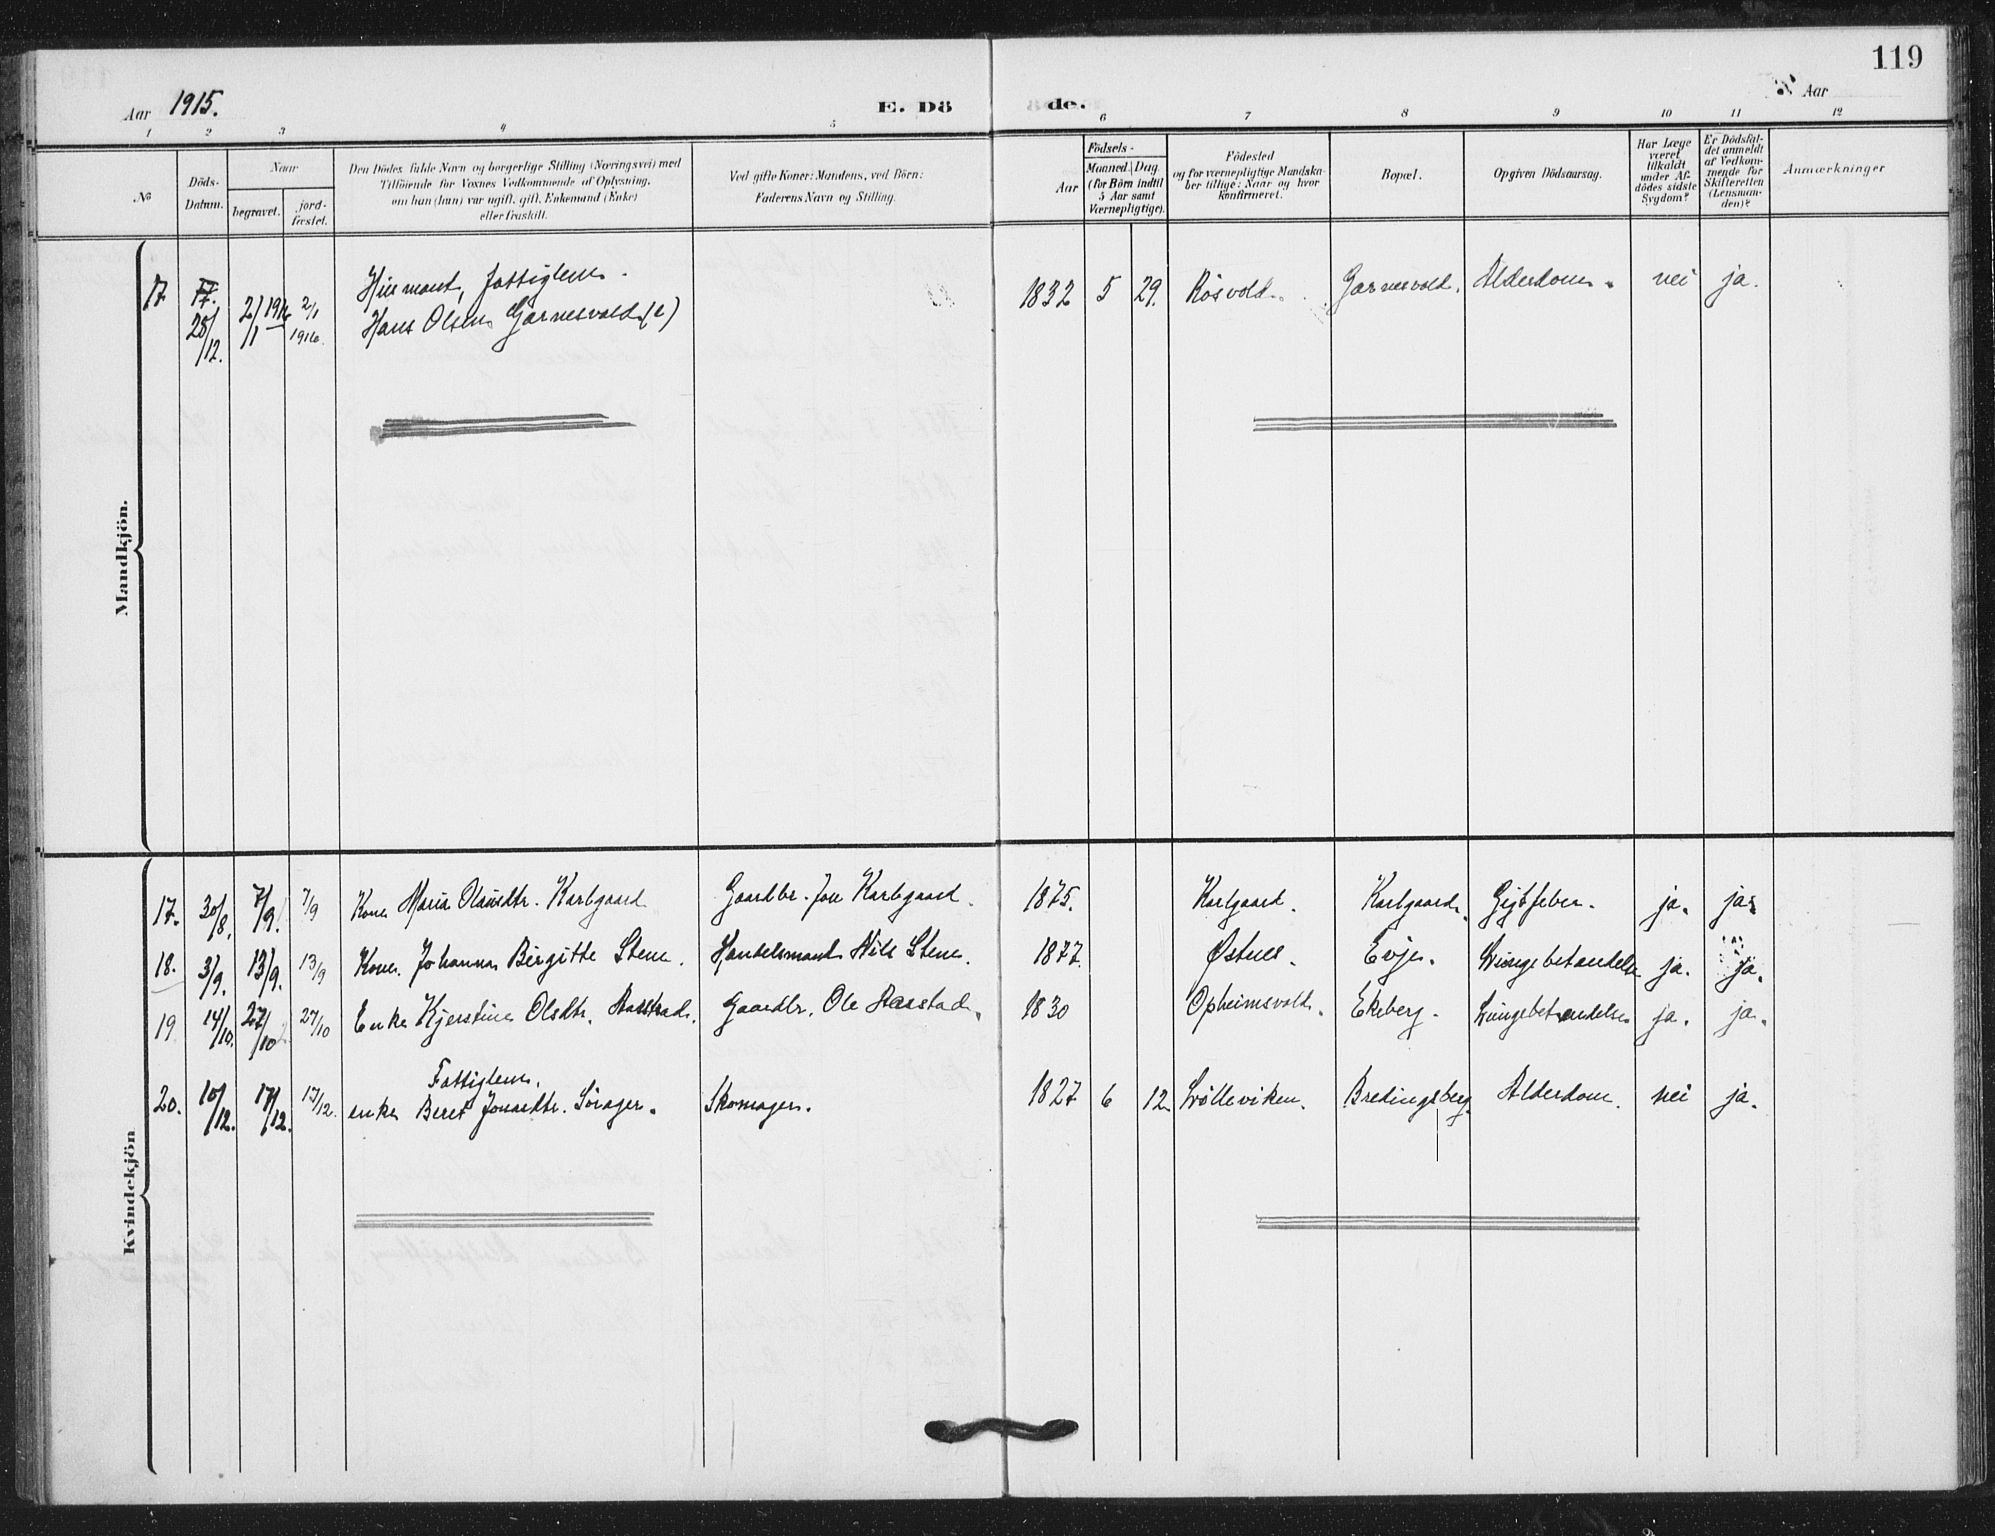 119
Aar 1915. E. Dö de. Aar
1 2 3 4 5 6 7 8 9 10 11 12
No
Döds-
Datum.
Naar
begravet.
jord-
fæstet.
Den Dödes fulde Navn og borgerlige Stilling (Næringsvei) med
Tilföiende for Voxnes Vedkommende af Oplysning,
om han (hun) var ugift, gift, Enkemand (Enke)
eller fraskilt.
Ved gifte Koner: Mandens, ved Börn:
Faderens Navn og Stilling.
Födsels-
Aar
Maaned. Dag
(for Börn indtil
5 Aar samt
Værnepligtige).
Födested
og for værnepligtige Mandska-
ber tillige: Naar og hvor
konfirmeret.
Bopæl.
Opgiven Dödsaarsag.
Har Læge
været
tilkaldt
under Af-
dödes sidste
Sygdom?
Er Dödsfal-
det anmeldt
af Vedkom-
mende for
Skifteretten
(Lensman-
den)?
Anmærkninger
Mandkjön.
17 28/12. 2/1 1916 2/1 1916. fattiglem.
Hans Olsen Garnesvold (e) 1832 5 29. Rösvold. Garnesvold. Alderdom. nei ja.
Kvindekjön
17. 30/8. 7/9. 7/9 Kone Maria Olausdtr. Karlgaard Gaardbr. Jon Karlgaard. 1875. Karlgaard. Karlgaard. Gigtfeber. ja. ja.
18. 3/9. 13/9. 13/9 Kone Johanna Birgitte Stene. Handelsmand Nils Stene. 1877. Østnes. Evje. Lungebetændelse ja. ja.
19 14/10. 27/10 27/10 Enke Kjerstine Olsdtr. Raastad. Gaardbr. Ole Raastad. 1830 Opheimsvold. Ekeberg. Lungebetændelse ja. ja.
Fattiglem.
20. 10/12. 17/12. 17/12. enke Beret Jonasdtr. Sörager. Skomager. 1827 6 12. Trölleviken. Bredingsberg Alderdom. nei ja.